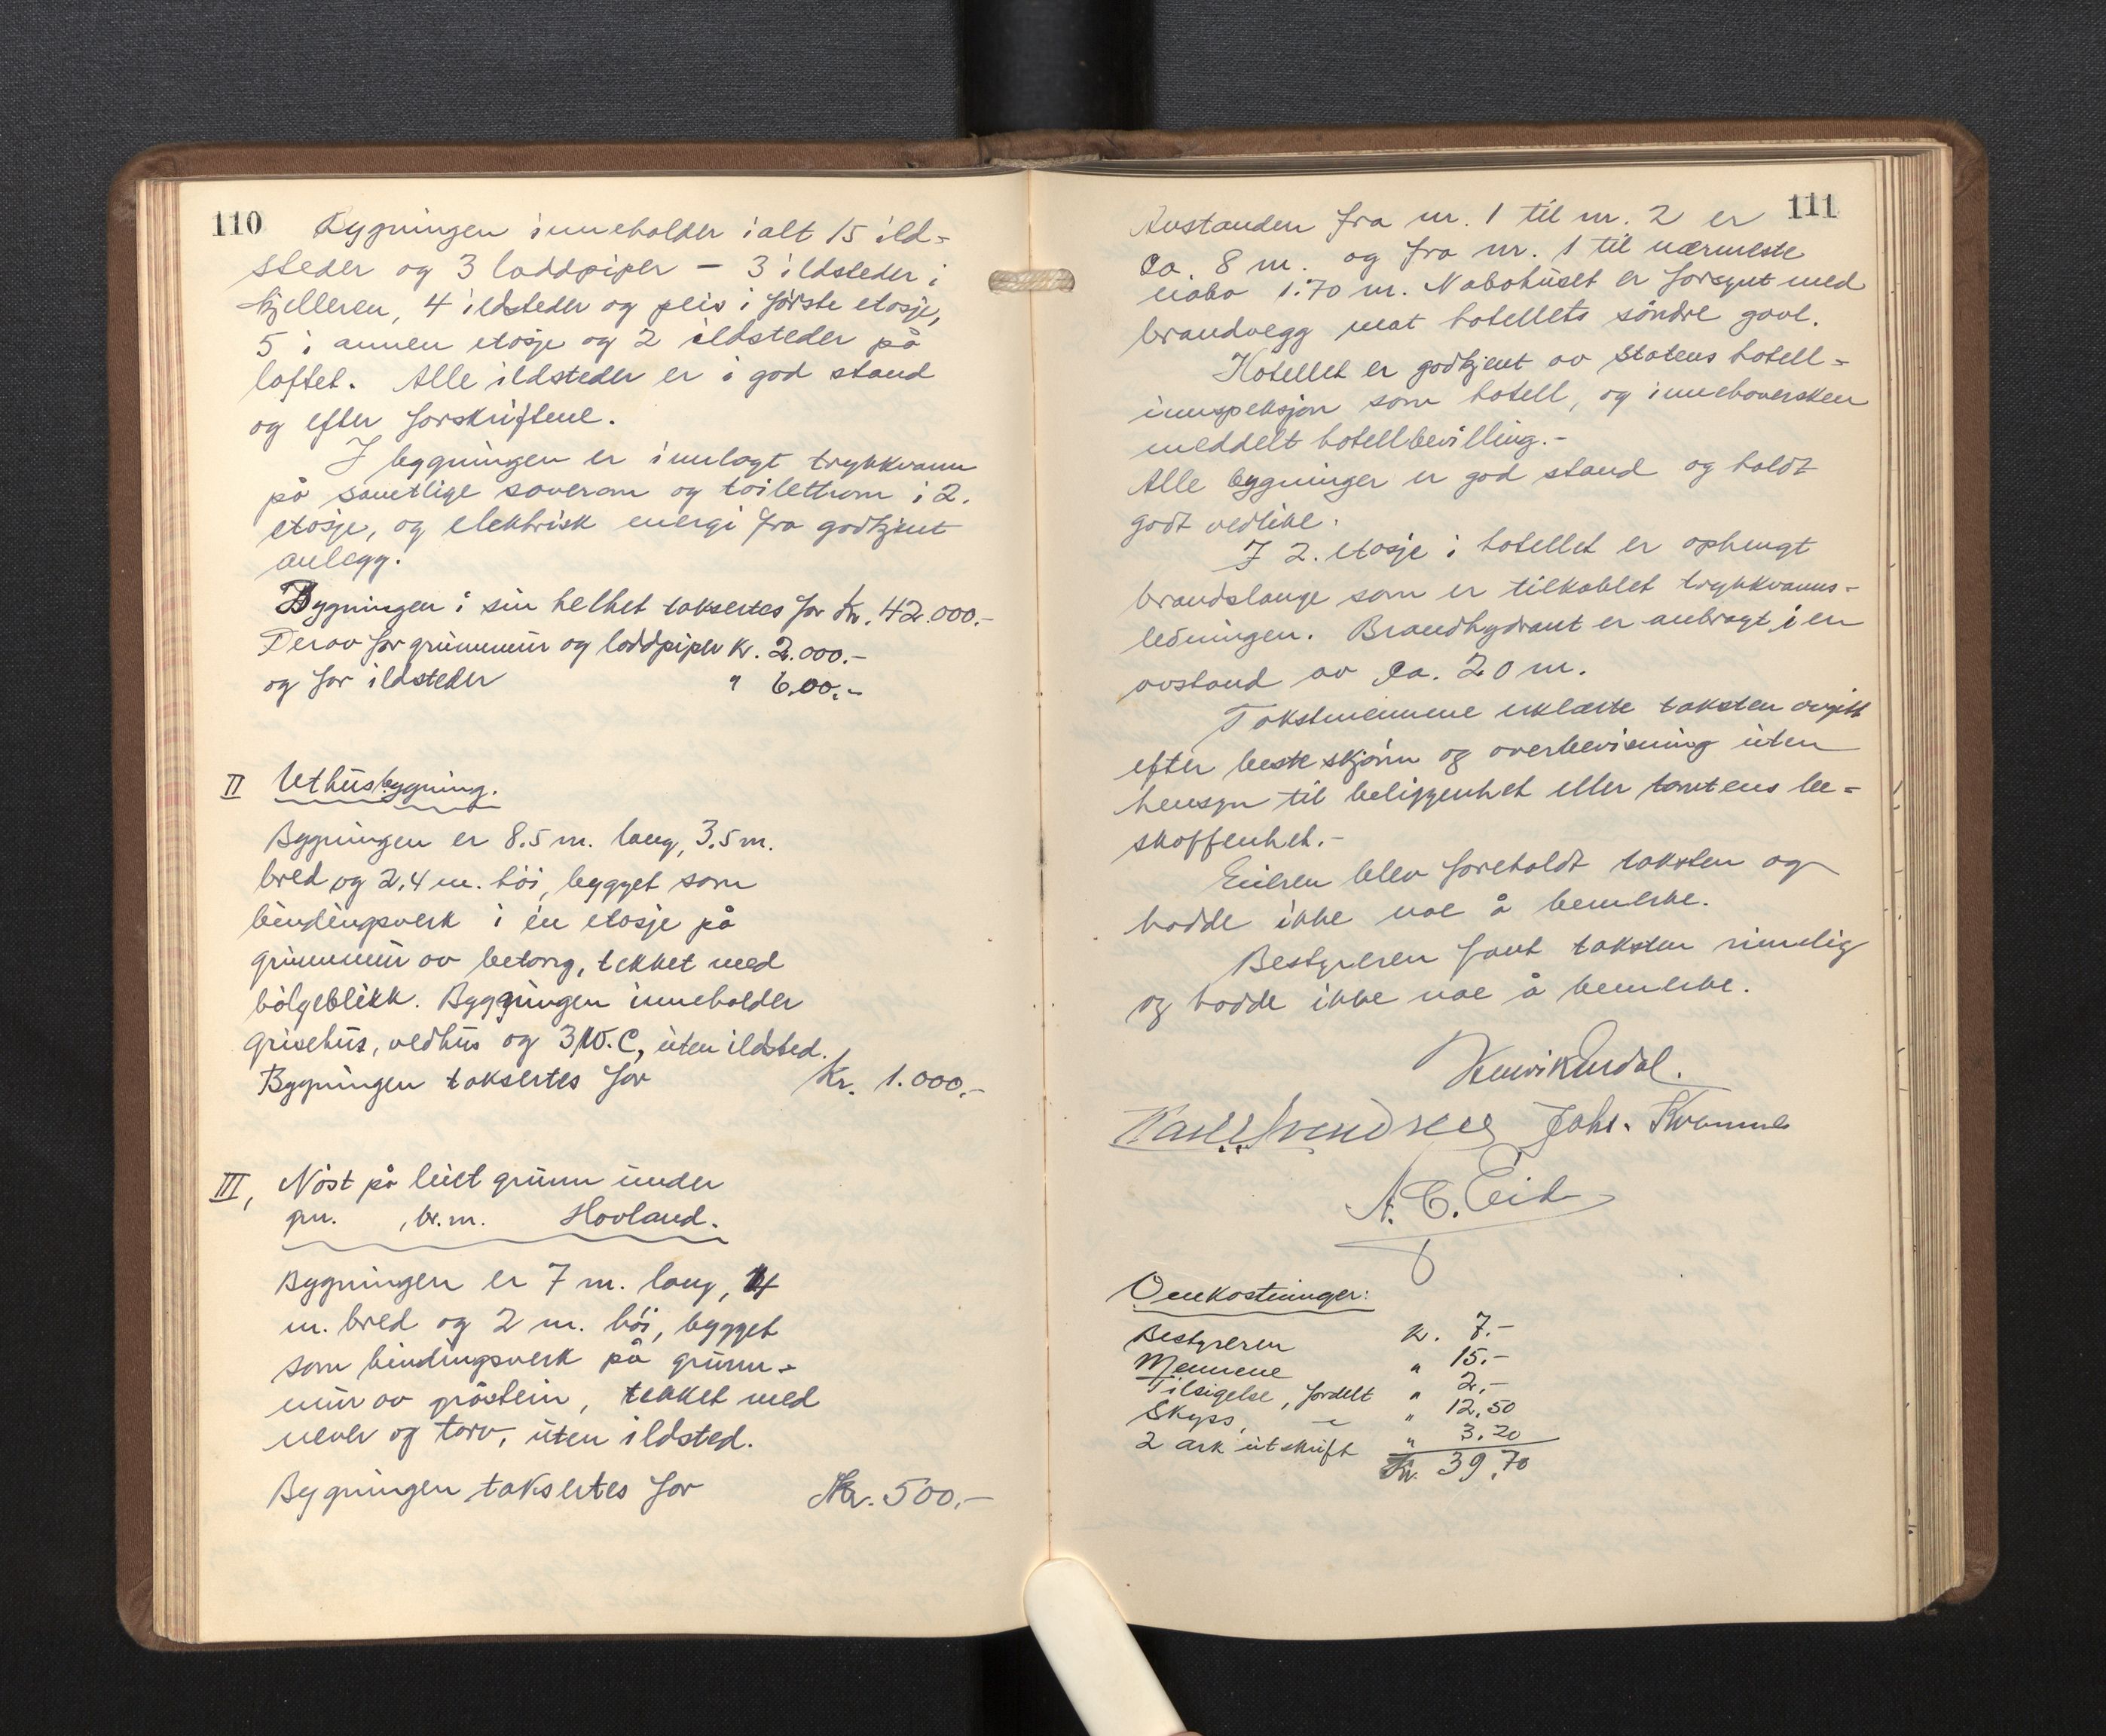 110
Bygningen inneholder ialt 15 ild-
steder og 3 loddpiper - 3 ildsteder i
kjelleren, 4 ildsteder og peis i första etasje,
5 i annen etasje og 2 ildsteder på
loftet. Alle ildsteder er i god stand
og efter forskriftene.
I bygningen er innlagt trykkvann
på samtlige soverom og toilettrom i 2.
etasje, og elektrisk energi fra godkjent
anlegg.
Bygningen i sin helhet takseres for Kr. 42.000.-
Derav for grunnmur og loddpiper kr. 2.000.-
og for ildsteder " 600.-
II Uthusbygning.
Bygningen er 8.5 m. lang, 3.5 m.
bred og 2,4 m. höi, bygget som
bindingsverk i én etasje på
grunnmur av betong, tekket med
bölgeblikk. Byggningen inneholder
grisehus, vedhus og 3 W.C, uten ildsted.
Bygningen takseres for Kr. 1.000.-
III, Nöst på leiet grunn under
gn. , br.nr. Hovland.
Bygningen er 7 m. lang, 4
m. bred og 2 m. höi, bygget
som bindingsverk på grunn-
mur av gråstein, tekket med
never og torv, uten ildsted.
Bygningen takseres for Kr. 500.-
111
Avstanden fra nr. 1 til nr. 2 er
ca. 8 m. og fra nr. 1 til nærmeste
nabo 1.70 m. Nabohuset er forsynt med
brandvegg mot hotellets söndre gavl.
Hotellet er godkjent av Statens hotell-
innspeksjon som hotell, og innehaversken
meddelt hotellbevilling.-
Alle bygninger er god stand og holdt
godt vedlike.
I 2. etasje i hotellet er ophengt
brandslange som er tilkoblet trykkvanns-
ledningen. Brandhydrant er anbragt i en
avstand av ca. 20 m.
Takstmennene erklærte taksten avgitt
efter beste skjönn og overbevisning uten
hensyn til beliggenhet eller tomtens be-
skaffenhet.-
Eieren blev foreholdt taksten og
hadde ikke noe å bemerke.
Bestyreren fant taksten rimelig
og hadde ikke noe å bemerke.
Henrik
Karl Svendsen Johs. Kvamme
A. C. Eide
Omkostninger:
Bestyreren kr. 7.-
Mennene " 15.-
Tilsigelse, fordelt " 2.-
Skyss, - " 12,50
2 ark utskrift " 3.20
Kr. 39,70